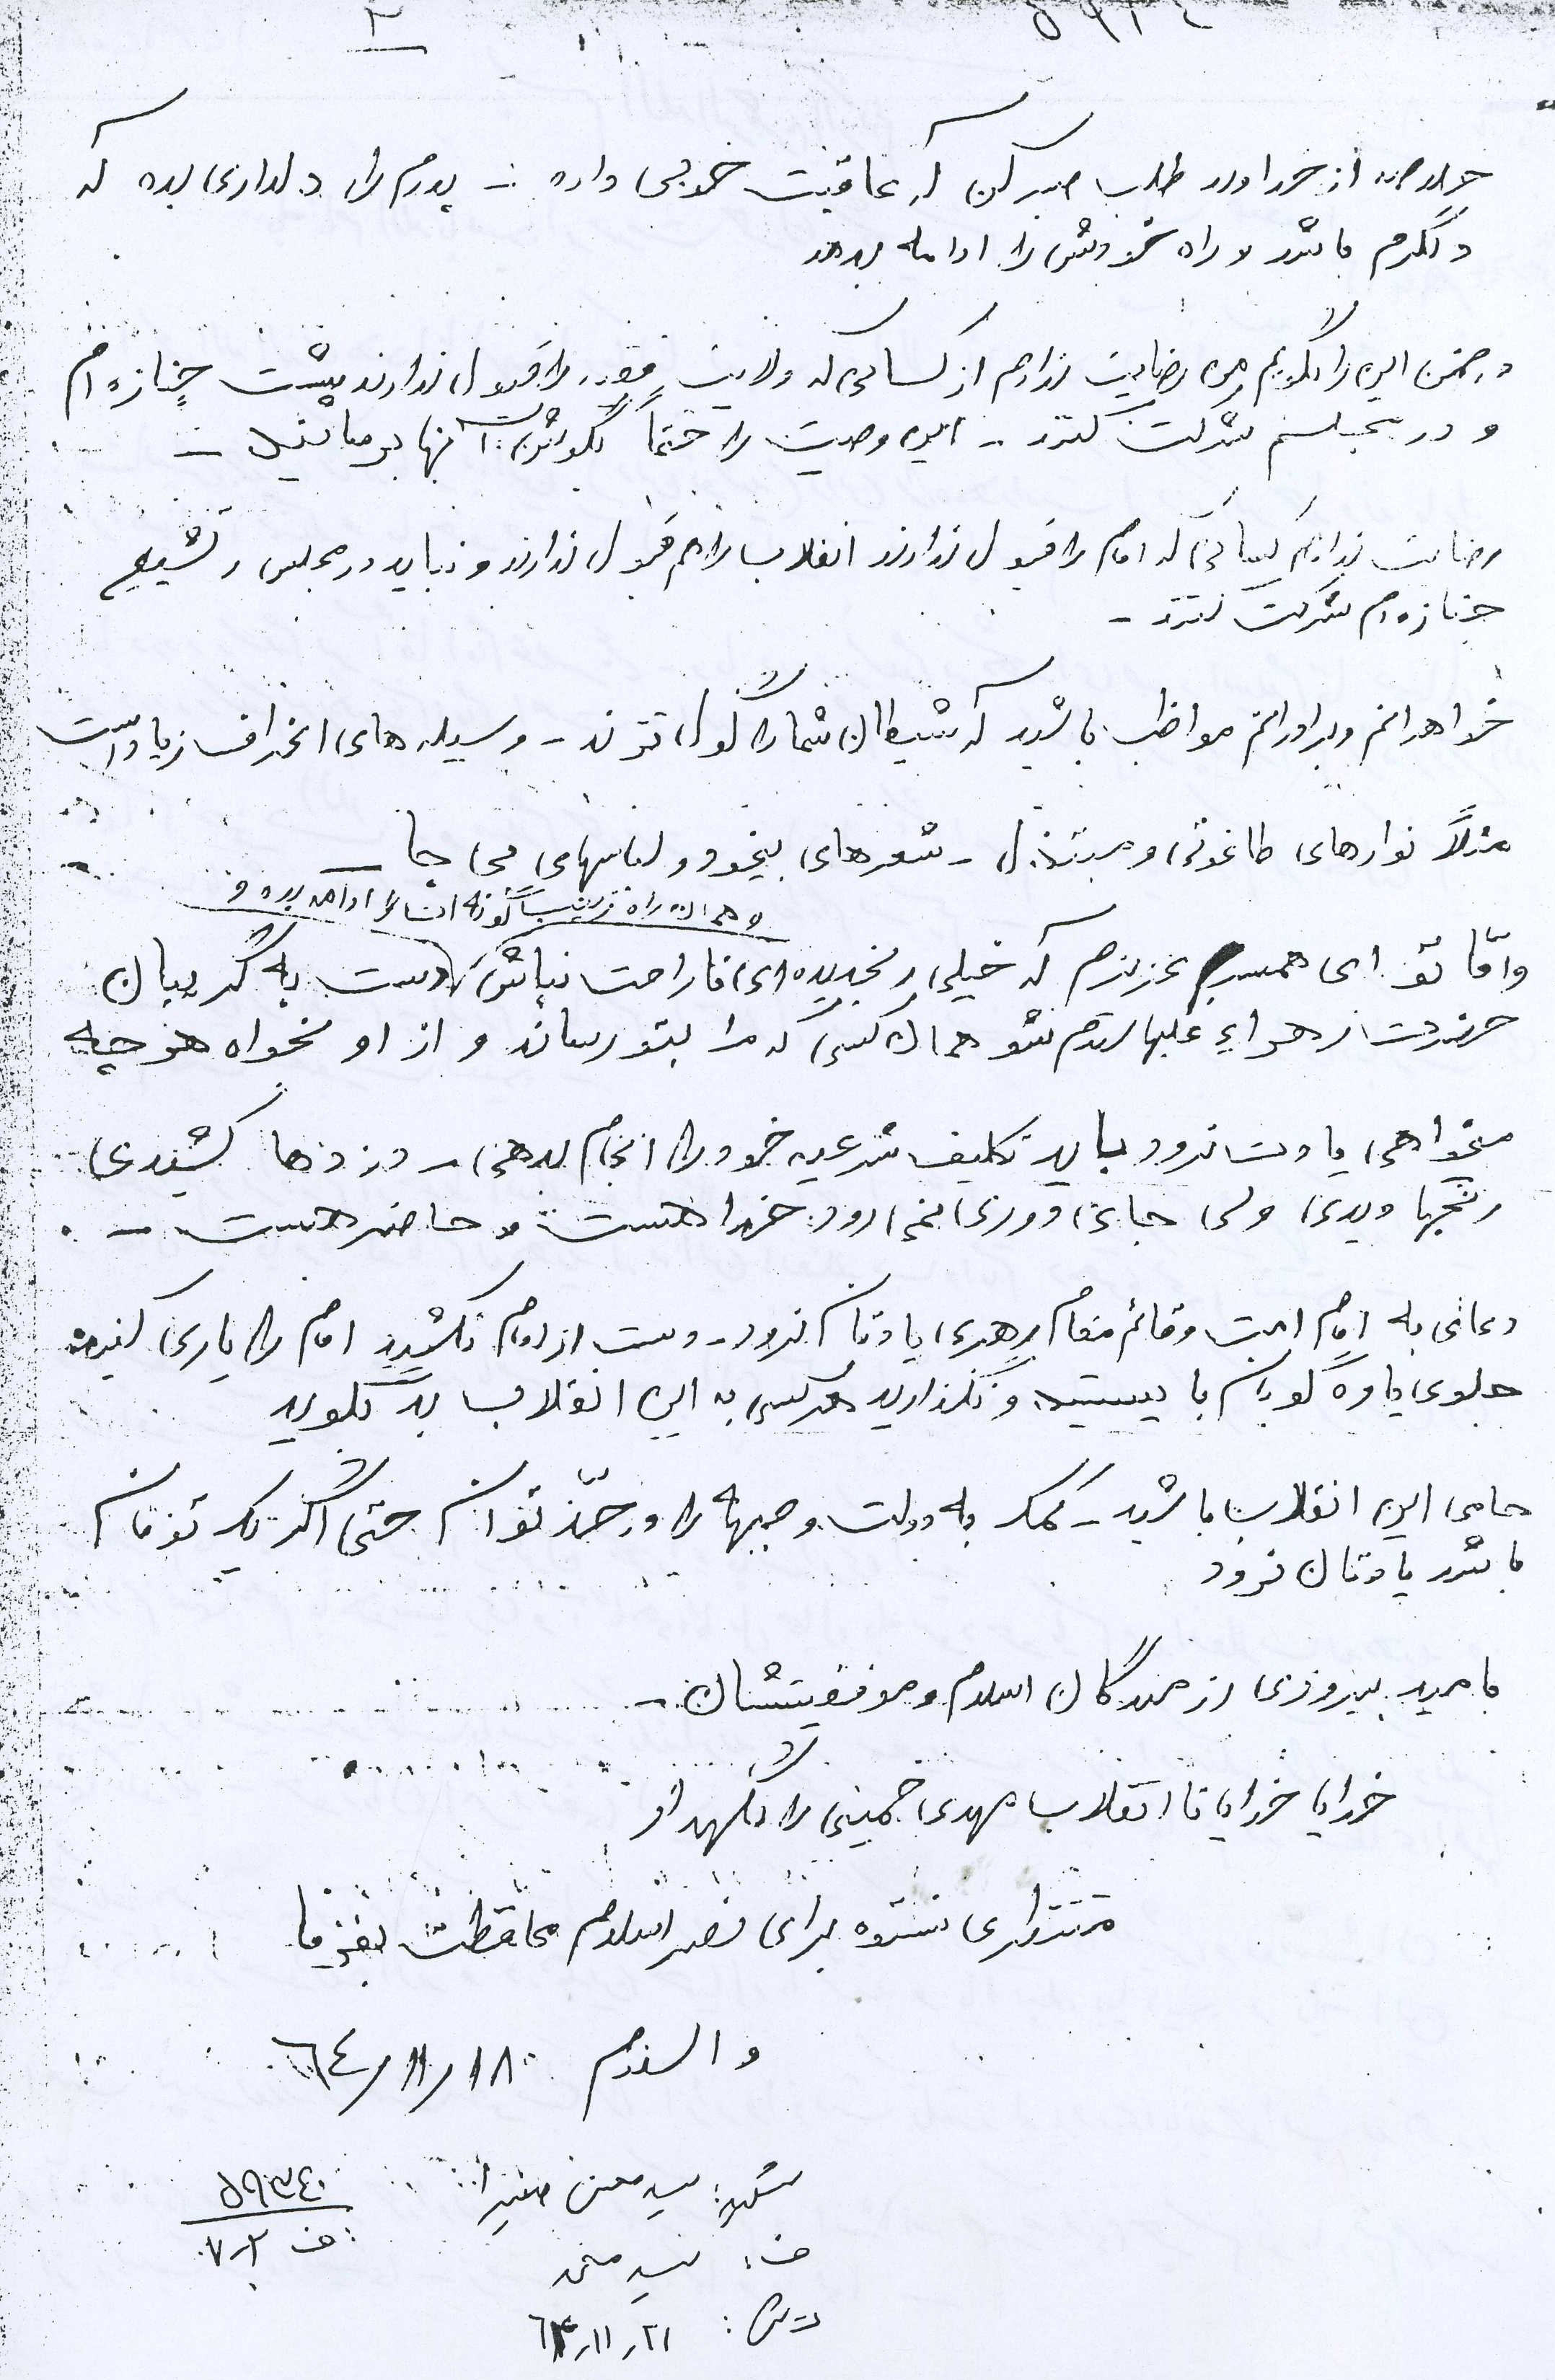 ۲
خلاصه از خداوند طلب صبر کن که عاقبت خوبی داره - پدرم را دلداری بده که
دلگرم باشد و راه خودش را ادامه بدهد
در ضمن این را بگویم من رضایت ندارم از کسانی که ولایت فقیه را قبول ندارند پشت جنازه ام
و در مجلسم شرکت کنند - این وصیت را حتماً بگوش آنها برسانید -
رضایت ندارم کسانی که امام را قبول ندارند انقلاب را هم قبول ندارند و نباید در مجلس و تشییع
جنازه ام شرکت کنند -
خواهرانم و برادرانم مواظب باشید که شیطان شما را گول نزند - وسیله های انحراف زیاد است
مثلاً نوارهای طاغوتی و مبتذل - شعرهای بیخود و لباسهای بی جا -
و همان راه زینب گونه ات را ادامه بده و
و امّا تو ای همسر عزیزم که خیلی رنجدیده ای ناراحت نباش دست به گریبان
حضرت زهراء علیها سلام شو همان کسی که مرا بتو رساند و از او بخواه هر چه
میخواهی یادت نرود باید تکلیف شرعیه خود را انجام بدهی -
رنجها دیدی ولی جای دوری نمی رود خدا هست و حاضر هست -
دعای به امام امت و قائم مقام رهبری یادتان نرود - دست از امام نکشید امام را یاری کنید
جلوی یاوه گویان بایستید و نگذارید هر کسی به این انقلاب بد بگوید
حامی این انقلاب باشید - کمک به دولت و جبهه را در حدّ توان حتی اگر یک تومان
باشد یادتان نرود
بامید پیروزی رزمندگان اسلام و موفقیتشان -
خدایا خدایا تا انقلاب مهدی خمینی را نگهدار
برای نصر اسلام محافظت بفرما
والسلام ۶۴/۱۱/۱۸
شهید: سید محسن
ف: سید محمد
۲۱/۱۱/۶۴
۵۹۳۴۰